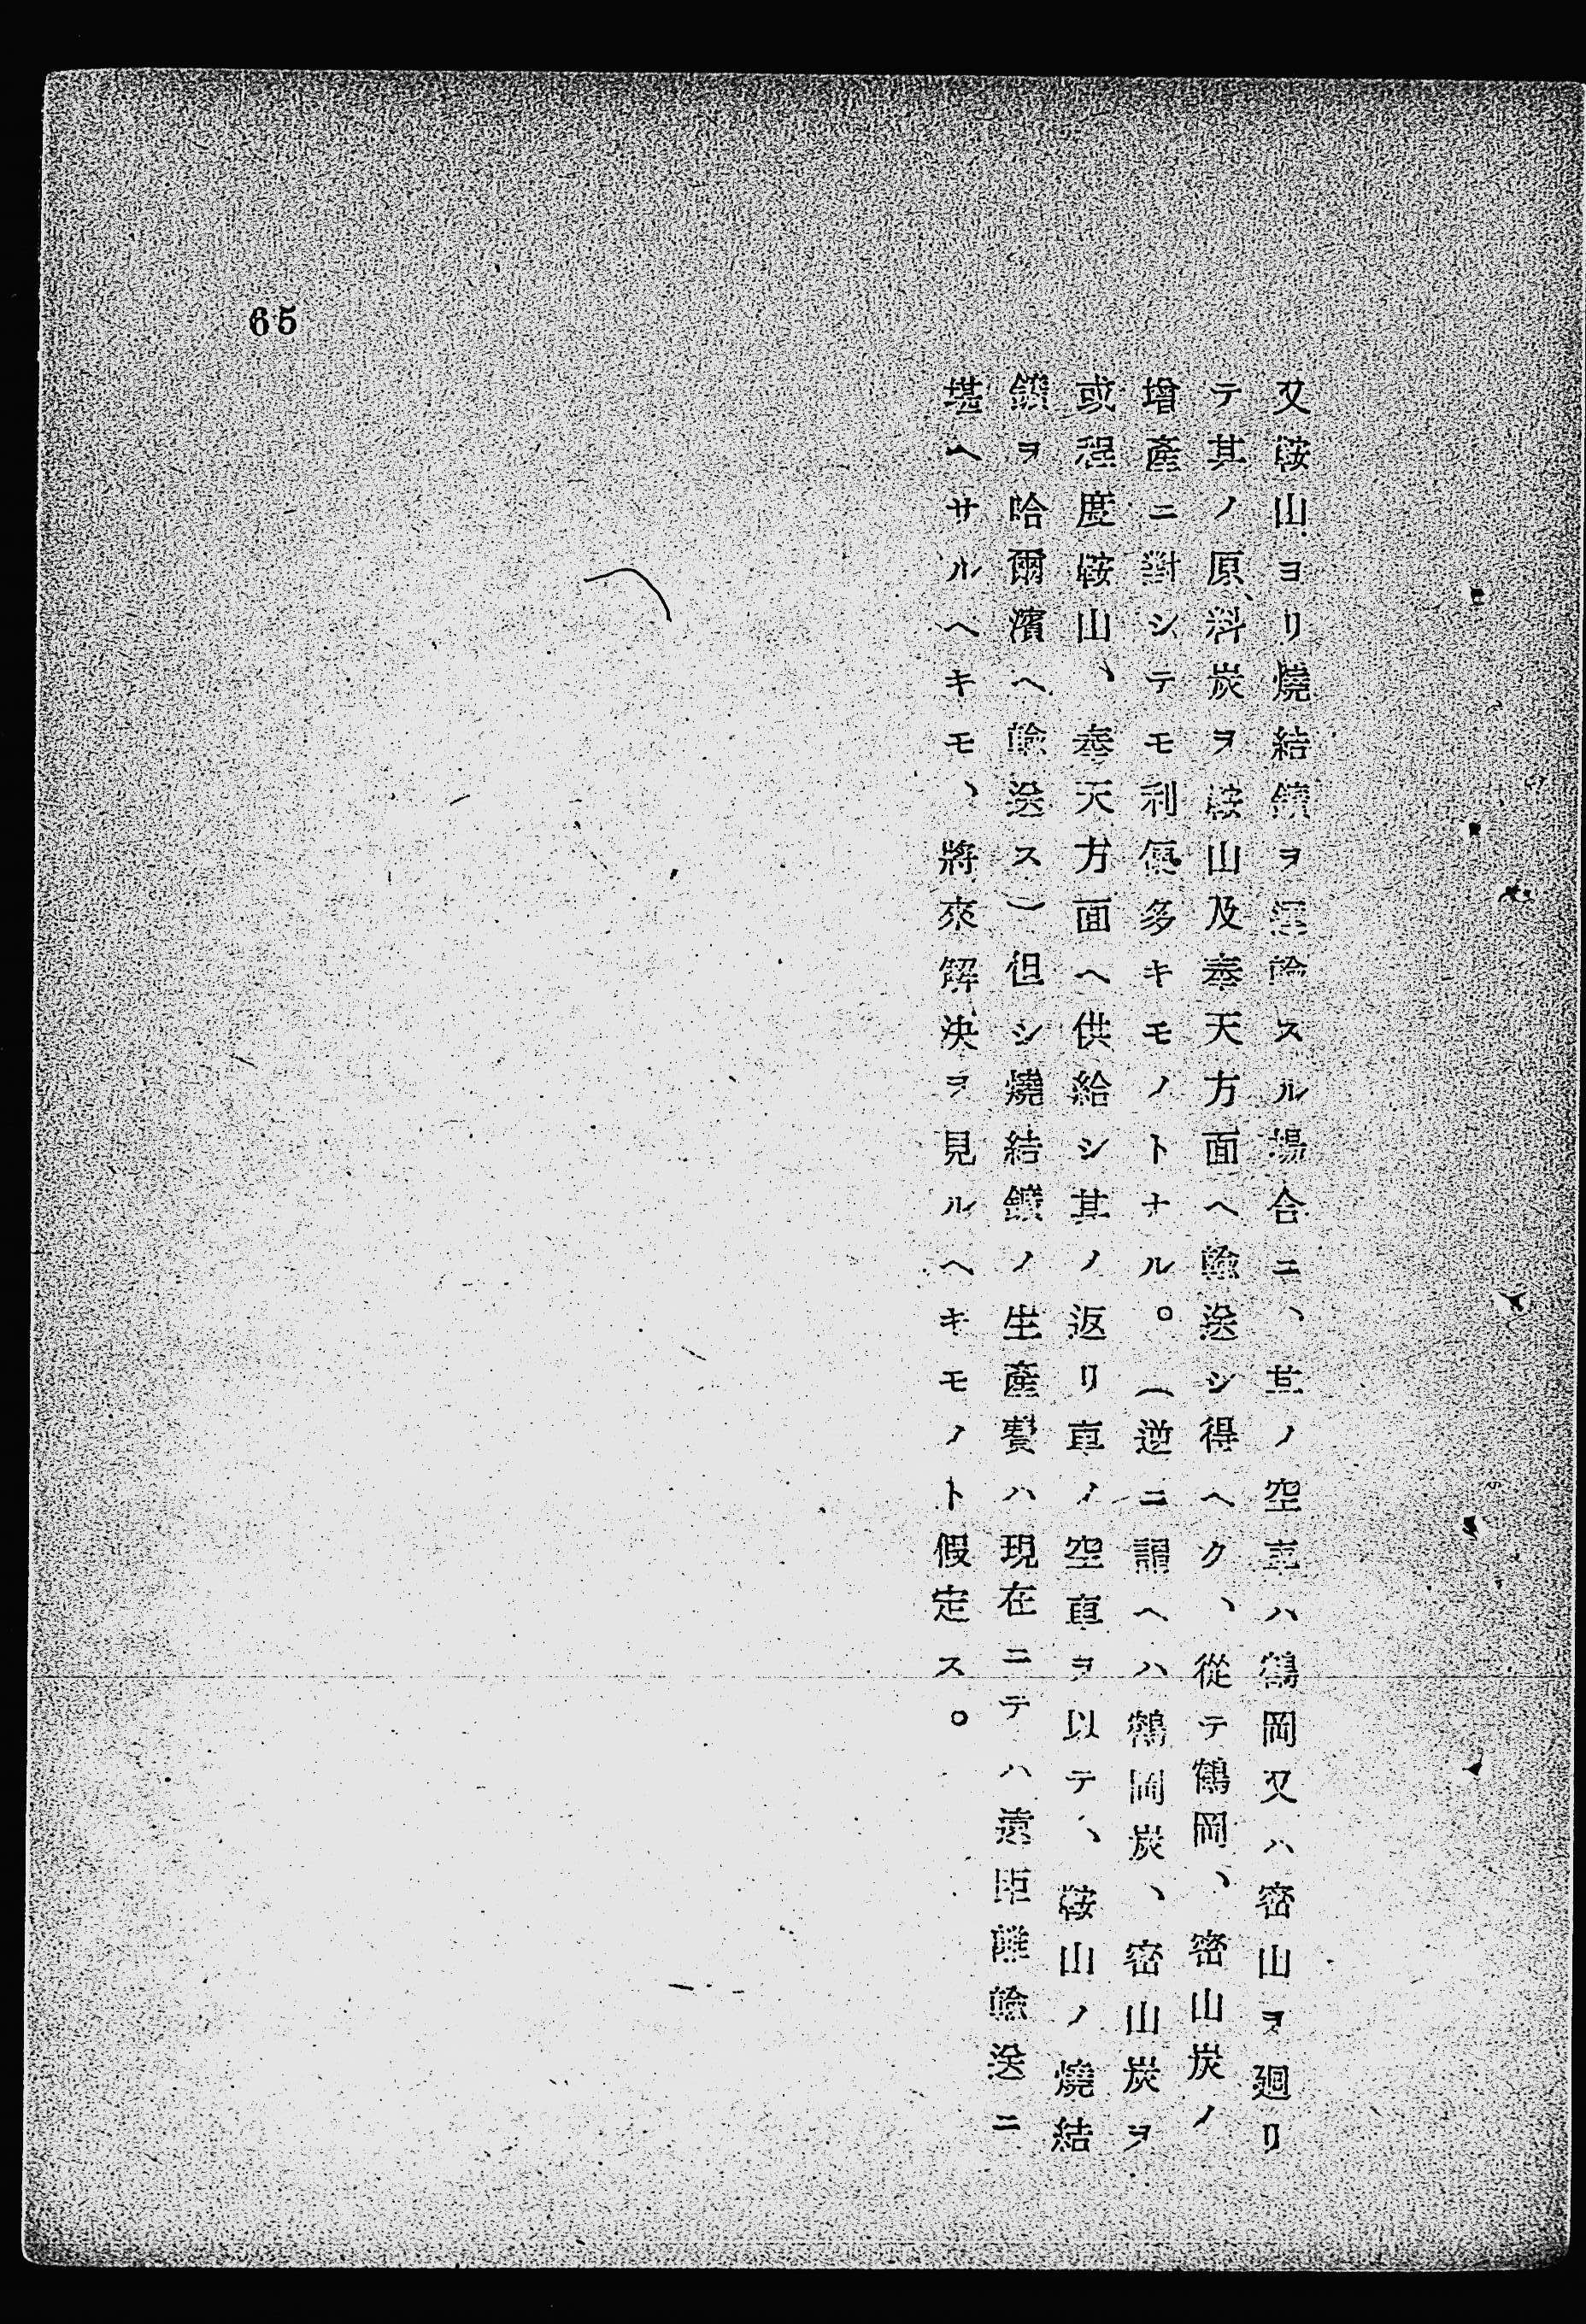 又鞍山ヨリ燒結鑛ヲ運輸スル場合ニ、其ノ空車ハ鶴岡又ハ密山ヲ廻リ
テ其ノ原料炭ヲ鞍山及奉天方面ヘ輸送シ得ヘク、從テ鶴岡、密山炭ノ
增產ニ對シテモ利便多キモノトナル。(逆ニ謂ヘハ鶴岡炭、密山炭ヲ
或程度鞍山、奉天方面ヘ供給シ其ノ返リ車ノ空車ヲ以テ、鞍山ノ燒結
鑛ヲ哈爾濱ヘ輸送ス)但シ燒結鑛ノ生產費ハ現在ニテハ遠距離輸送ニ
堪ヘサルヘキモ、將來解決ヲ見ルヘキモノト假定ス。
65